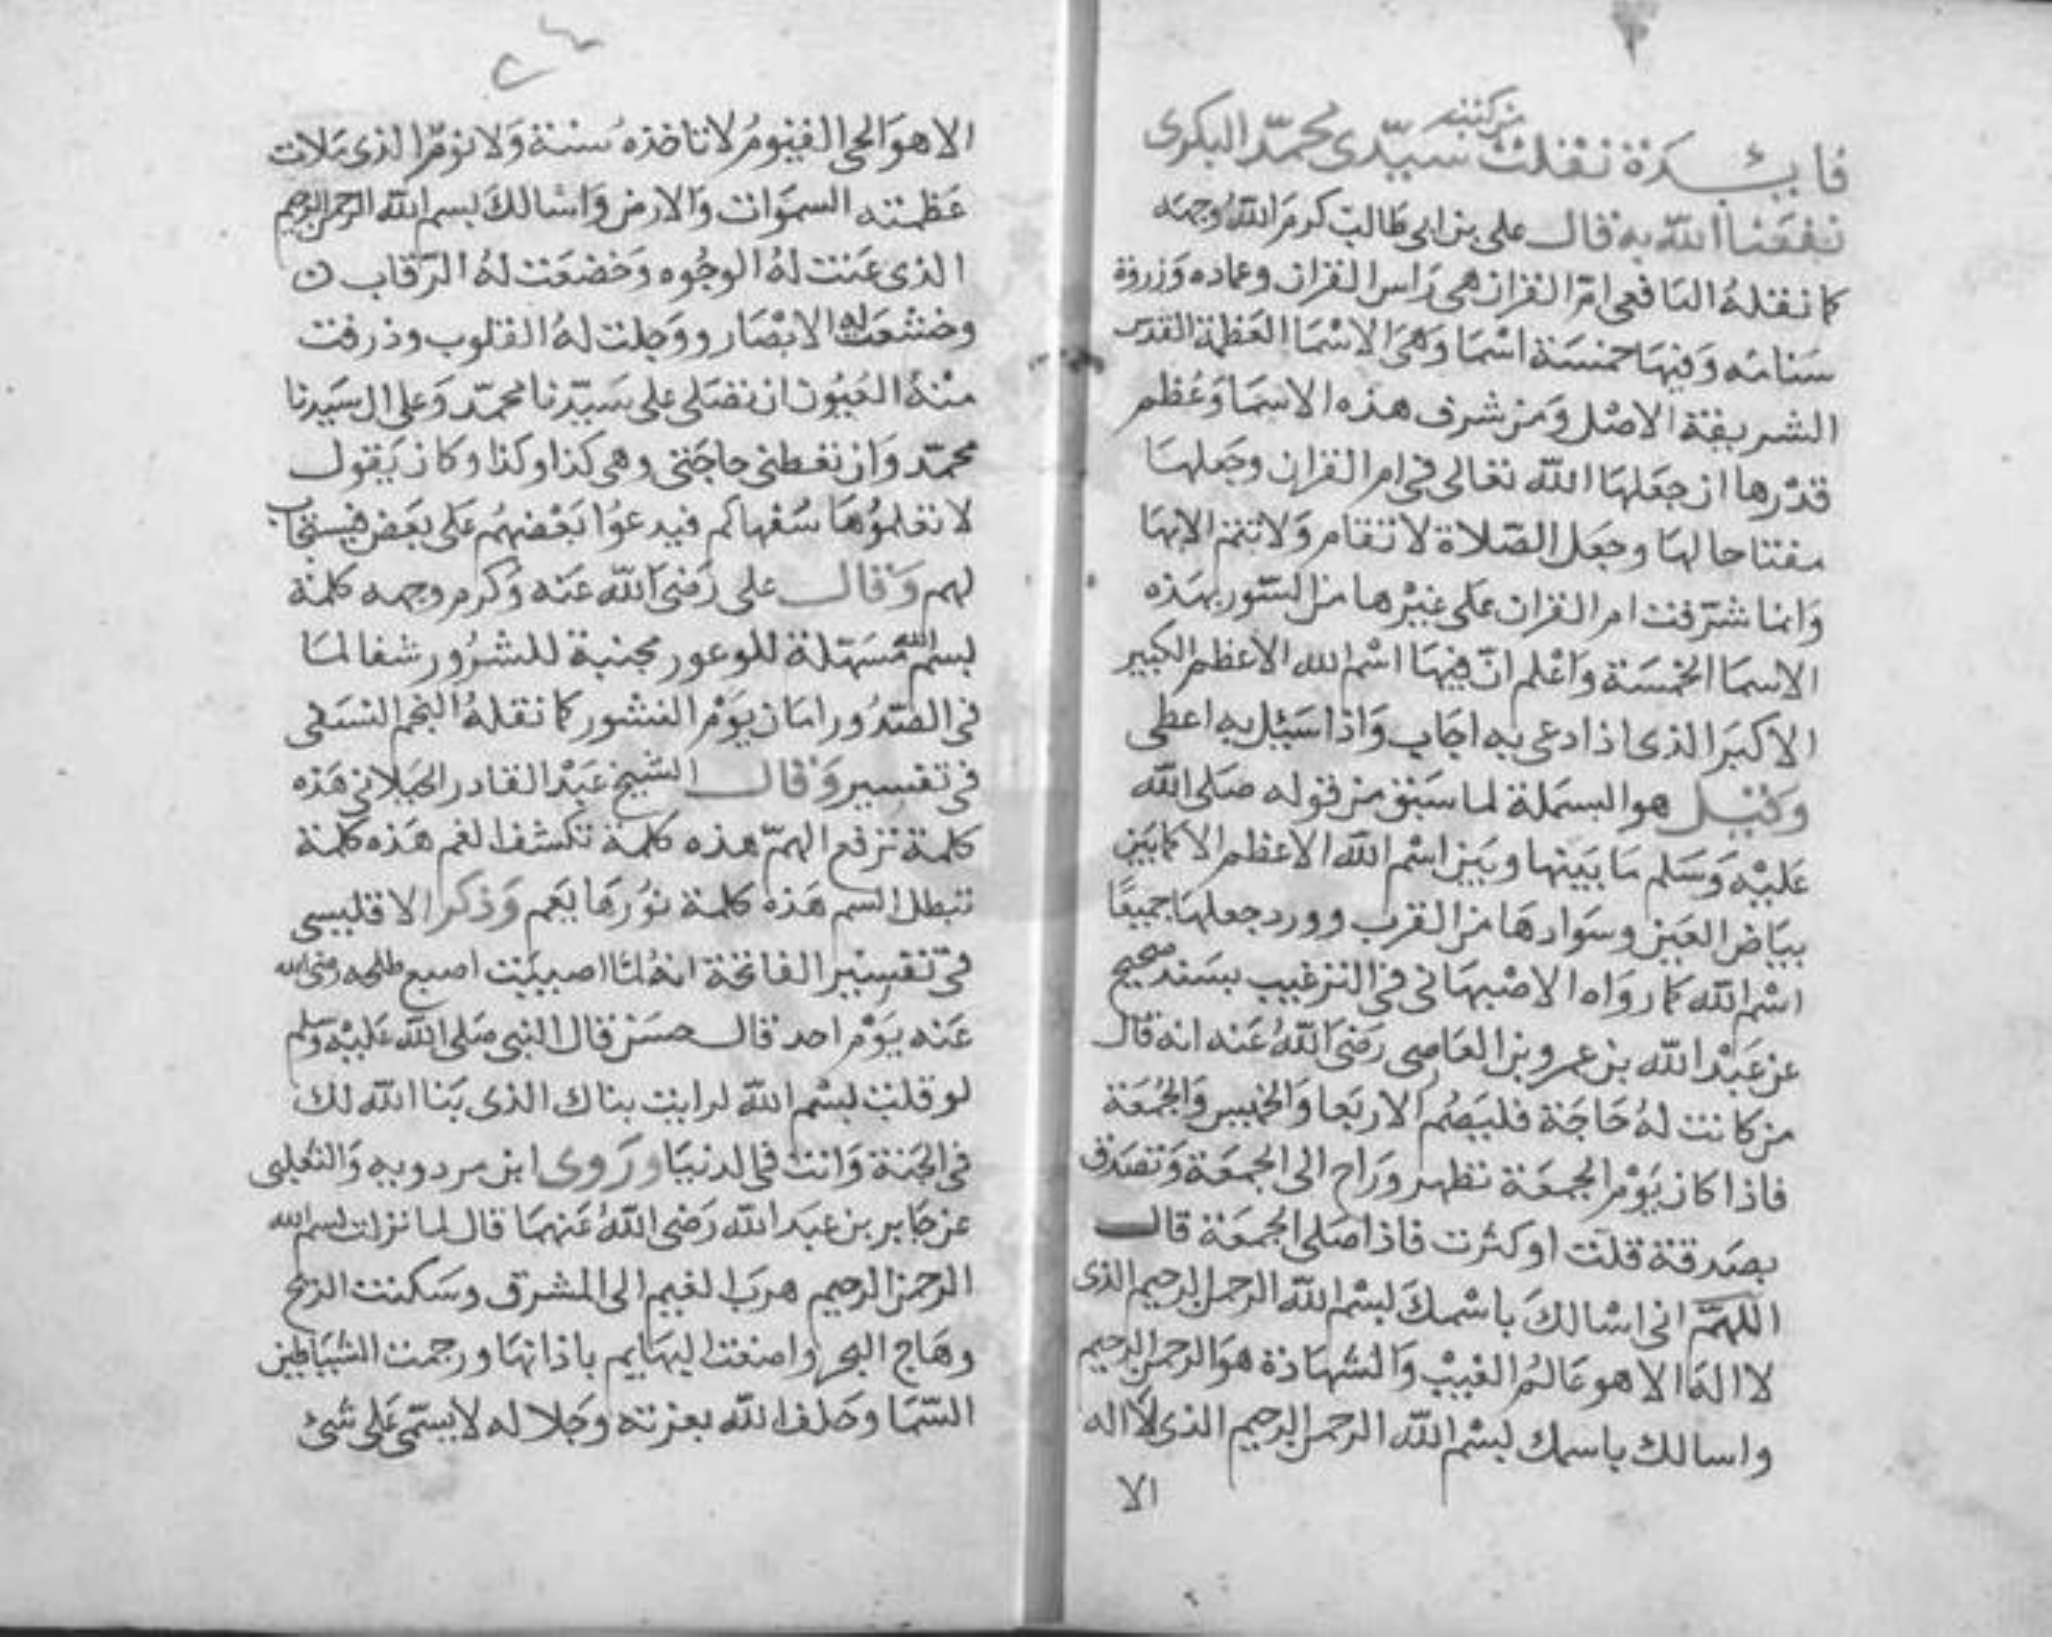 فايدة نقلت من كتب سيدى محمد البكرى
نفعنا الله به قال على بن ابى طالب كرم الله وجهه
كما نقله اليافعى ام القران هى راس القران وعماده وزروة
سنامه وفيها خمسة اسما وهى الاسما العظمة القدس
الشريفة الاصل ومن شرف هذه الاسما وعُظم
قدرها ان جعلها الله تعالى فى ام القران وجعلها
مفتاحا لها وجعل الصلاة لا تقام ولا تتم الا بها
وانما شرّفت ام القران على غيرها من السّور بهذه
الاسما الخمسة واعلم انّ فيها اسم الله الاعظم الكبير
الاكبر الذى اذا دعى به اجاب واذا سيل به اعطى
وقيل هو البسملة لما سبق من قوله صلى الله
عليه وسلم ما بينها وبين اسم الله الاعظم الا كما بين
بياض العين وسوادها من القرب وورد جعلها جميعًا
اسم الله كما رواه الاصبهانى فى الترغيب بسند صحيح
عن عبد الله بن عمرو بن العاصى رضى الله عنه انه قال
من كانت له حاجة فليصُم الاربعا والخميس والجمعة
فاذا كان يوم الجمعة تطهر وراح الى الجمعة وتصدق
بصدقة قلّت او كثرت فاذا صلى الجمعة قال
اللهمّ انى اسالك باسمك بسم الله الرحمن الرحيم الذى
لا اله الا هو عالم الغيب والشهادة هو الرحمن الرحيم
واسالك باسمك بسم الله الرحمن الرحيم الذى لا اله
الا
الا هو الحى القيوم لا تاخذه سنة ولا نوم الذى ملات
عظمته السموات والارض واسالك بسم الله الرحمن الرحيم
الذى عنت له الوجوه وخضعت له الرقاب
وخشعت له الابصار ووجلت له القلوب وذرفت
منه العيون ان تصلى على سيّدنا محمد وعلى ال سيدنا
محمد وان تعطنى حاجتى وهى كذا وكذا وكان يقول
لا تعلموها سفهاكم فيدعوا بعضهم على بعض فيستجاب
لهم وقال على رضى الله عنه وكرم وجهه كلمة
بسم الله مسهلة للوعور مجنبة للشرور شفا لما
فى الصدور امان يوم النشور كما نقله النجم النسفى
فى تفسير وقال الشيخ عبد القادر الجيلانى هذه
كلمة ترفع الهمّ هذه كلمة تكشف الغم هذه كلمة
تبطل السم هذه كلمة نورها يعم وذكر الاقليسى
فى تفسير الفاتحة انه لما اصيبت اصبع طلحه رضى الله
عنه يوم احد قال حسن قال النبى صلى الله عليه وسلم
لو قلت بسم الله لرايت بناك الذى بنا الله لك
فى الجنة وانت فى الدنيا وروى ابن مردويه والثعلبى
عن جابر بن عبد الله رضى الله عنهما قال لما نزلت بسم الله
الرحمن الرحيم هرب الغيم الى المشرق وسكنت الريح
وهاج البحر واصغت البهايم باذانها ورجمت الشياطين
السّما وحلف الله بعزته وجلاله لا يسمّى على شئ